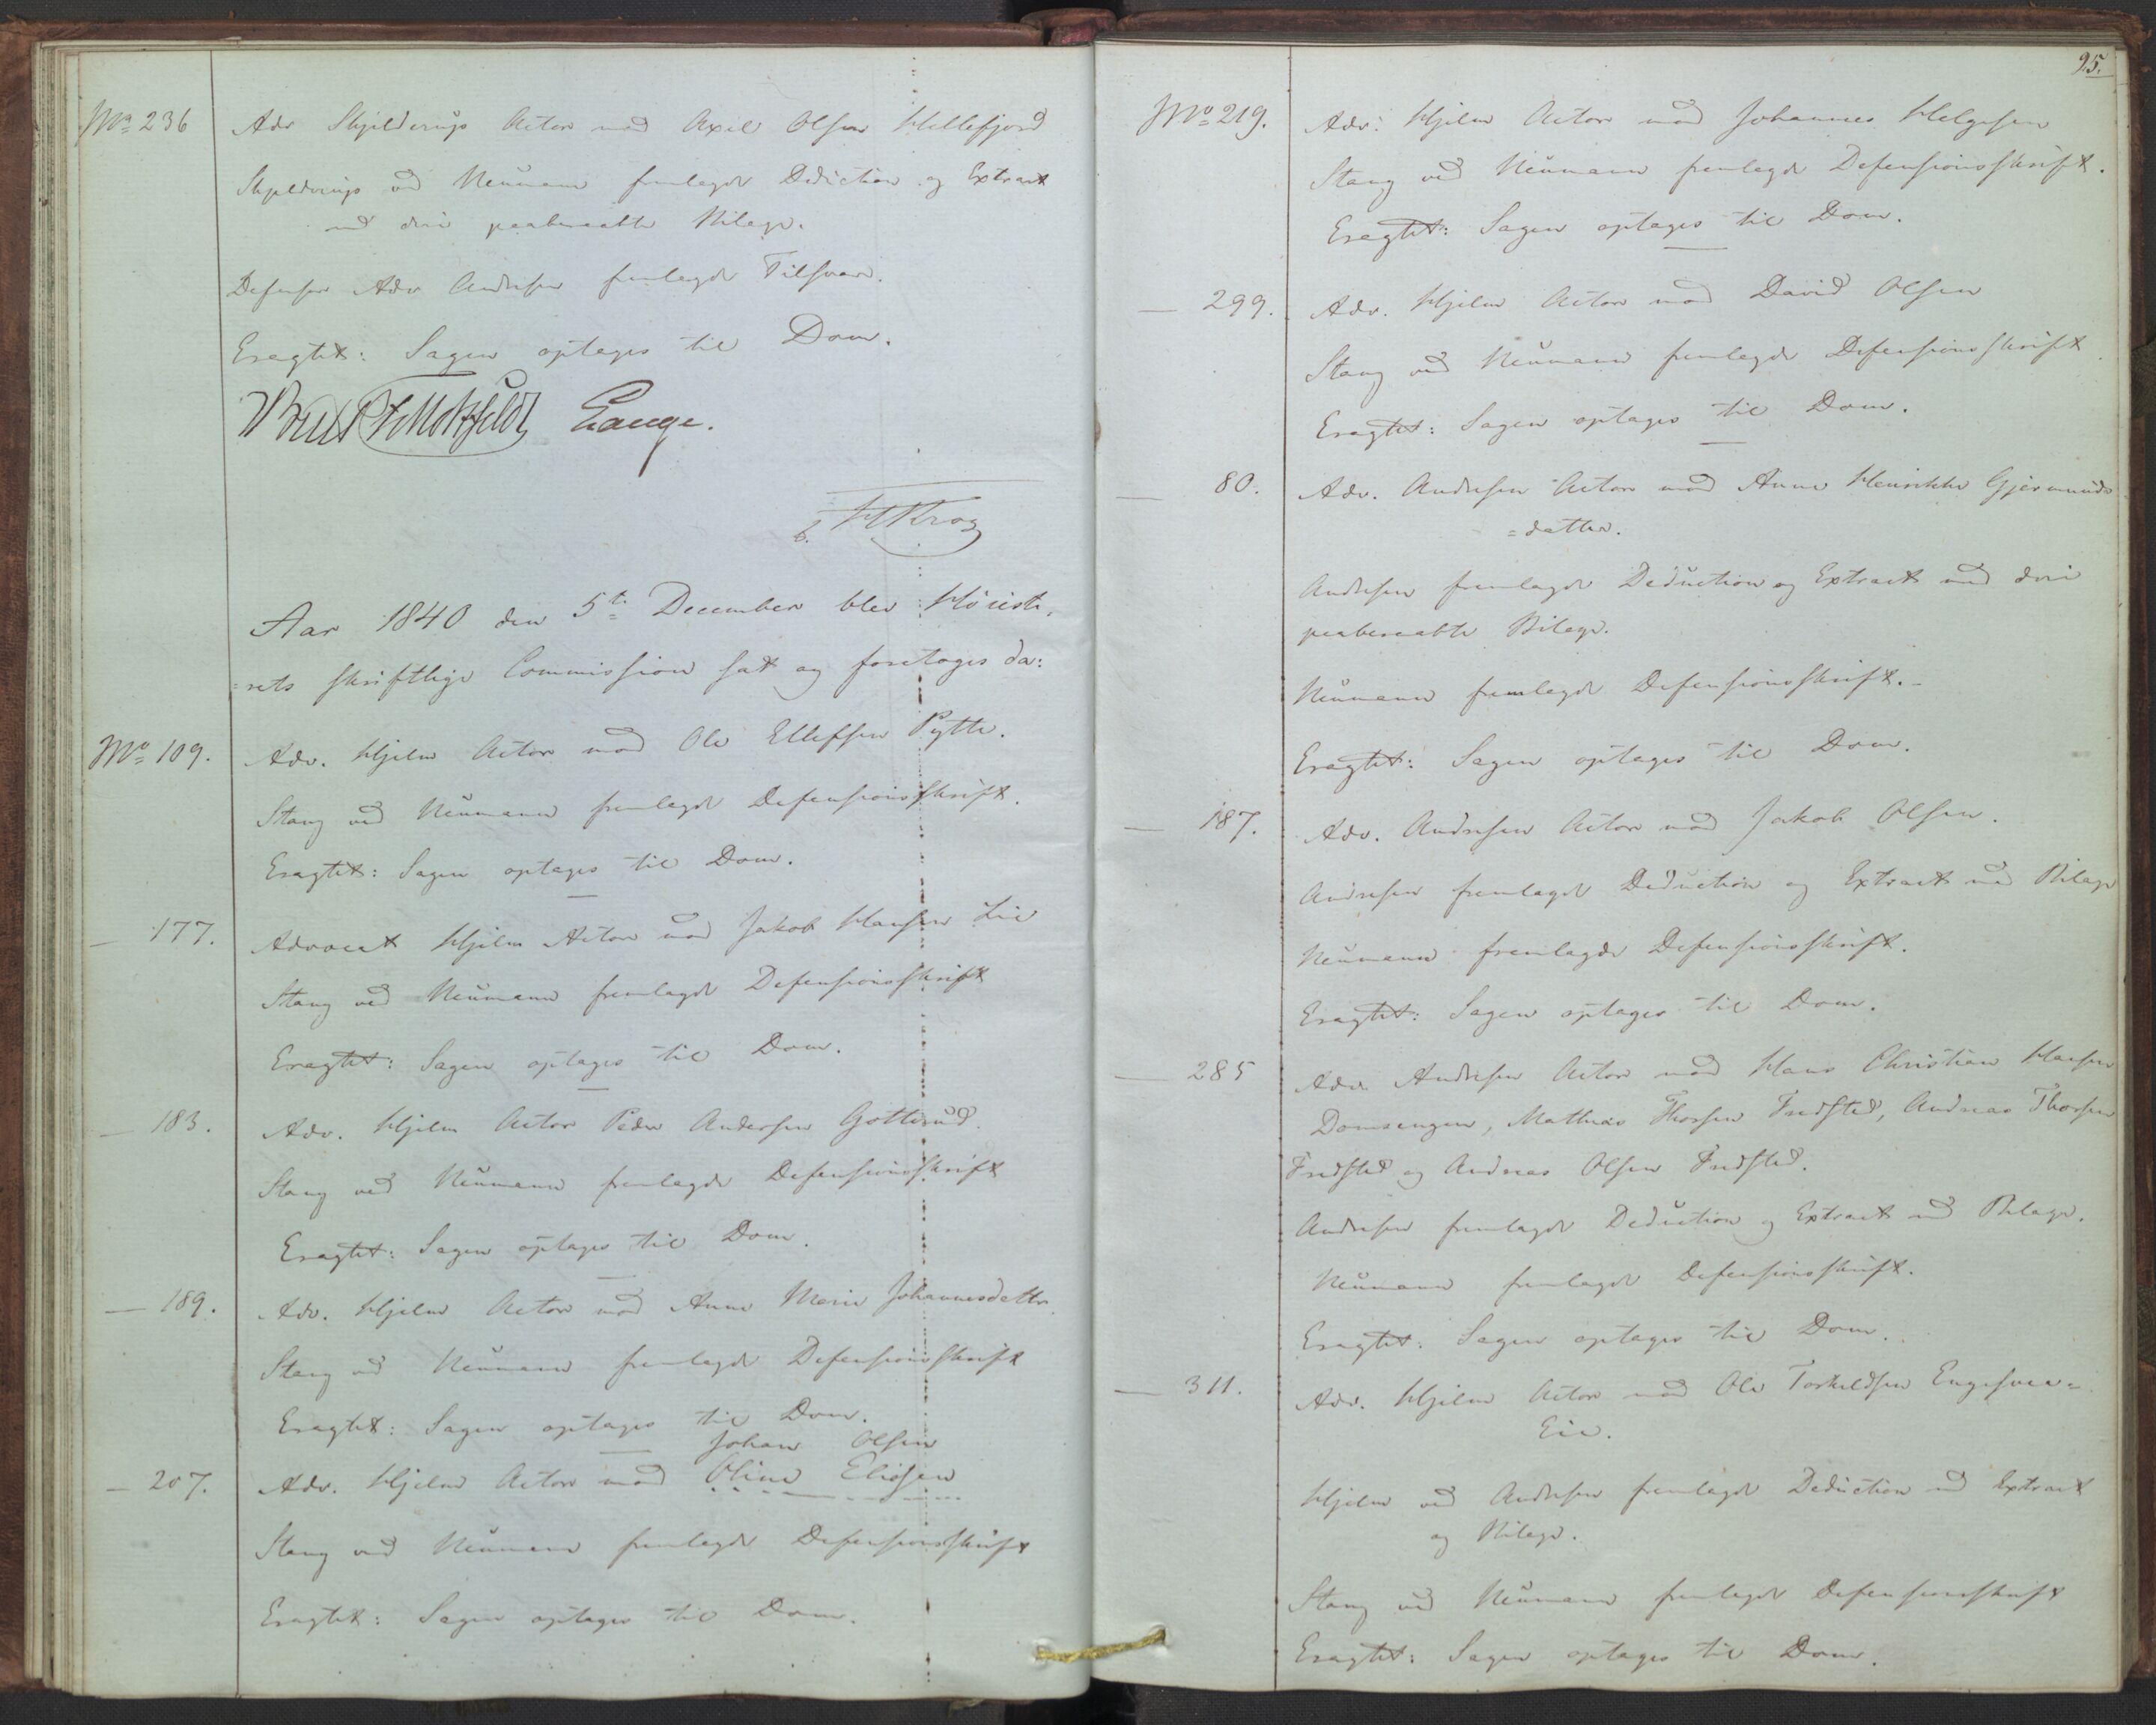 No 236 Adv Skjelderup Actor mod Axel Olsen Hellefjord
Skjelderup ved Neumann fremlagde Deduction og Extract
med deri paaberaabte Bilage.
Defensor Adv Andresen fremlagde Tilsvar.
Eragtet: Sagen optages til Dom.
Motzfeldt Lange.
HKrog
Aar 1840 den 5te December blev Höieste-
=rets skriftlige Commission sat og foretoges da:
No 109. Adv. Hjelm Actor mod Ole Ellefsen Pytte.
Stang ved Neumann fremlagde Defensionsskrift.
Eragtet: Sagen optages til Dom.
— 177. Advocat Hjelm Actor mod Jakob Hansen Lie
Stang ved Neumann fremlagde Defensionsskrift
Eragtet: Sagen optages til Dom.
— 183. Adv. Hjelm Actor Peder Andersen Gotterud.
Stang ved Neumann fremlagde Defensionsskrift
Eragtet: Sagen optages til Dom.
— 189. Adv. Hjelm Actor mod Anne Marie Johannesdatter
Stang ved Neumann fremlagde Defensionsskrift
Eragtet: Sagen optages til Dom.
Johan Olsen
— 207. Adv. Hjelm Actor mod Oline Eliesen
Stang ved Neumann fremlagde Defensionsskrift
Eragtet: Sagen optages til Dom.
95.
No 219. Adv. Hjelm Actor mod Johannes Helgesen
Stang ved Neumann fremlagde Defensionsskrift.
Eragtet: Sagen optages til Dom.
— 299. Adv. Hjelm Actor mod David Olsen
Stang ved Neumann fremlagde Defensionsskrift.
Eragtet: Sagen optages til Dom.
— 80. Adv. Andresen Actor mod Anne Henrikke Gjermunds
=datter.
Andresen fremlagde Deduction og Extract med deri
paaberaabte Bilage.
Neumann fremlagde Defensionsskrift.-
Eragtet: Sagen optages til Dom.
— 187. Adv. Andresen Actor mod Jakob Olsen.
Andresen fremlagde Deduction og Extract med Bilage
Neumann fremlagde Defensionsskrift.
Eragtet: Sagen optages til Dom.
— 285 Adv. Andresen Actor mod Hans Christian Hansen
Domsengen, Mathias Thorsen Fredsted, Andreas Thorsen
Fredsted og Andreas Olsen Fredsted.
Andresen fremlagde Deduction og Extract med Bilage.
Neumann fremlagde Defensionsskrift.
Eragtet: Sagen optages til Dom.
— 311. Adv. Hjelm Actor mod Ole Torkildsen Engesvea=
Eie.
Hjelm ved Andresen fremlagde Deduction med Extract
og Bilage.
Stang ved Neumann fremlagde Defensionsskrift
Eragtet: Sagen optages til Dom.